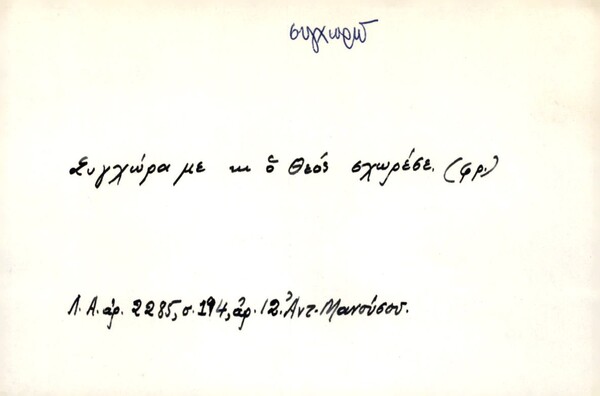 συγχωρῶ
Συγχώρα με κι ὁ Θεός σχωρέσε. (φρ.)
Λ.Α. ἀρ. 2285, σ. 194, ἀρ. 12. Ἀντ. Μανούσου.